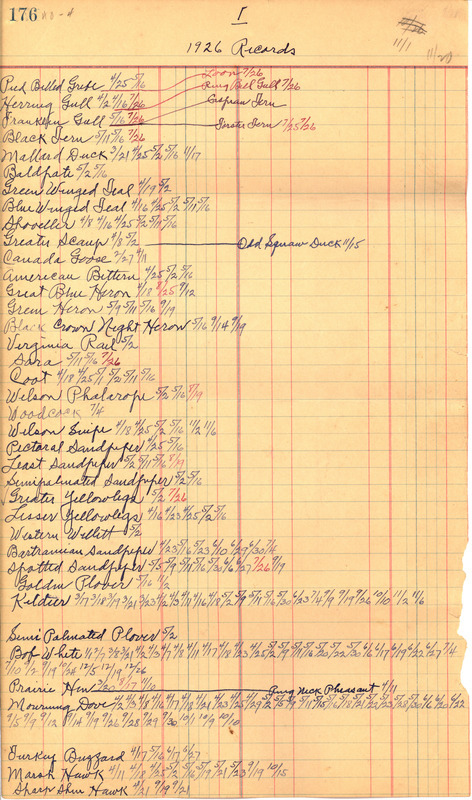 176 I
1926 Records
11/1 11/20
Pied Billed Grebe 4/25 5/16 Loon 7/26
Herring Gull 4/2 4/16 7/26 Ring Bill Gull 7/26
Franklin Gull 5/16 7/26 Caspian Tern
Black Tern 5/11 5/16 7/26 Forster Tern 7/25 7/26
Mallard Duck 3/21 4/25 5/2 5/16 11/17
Baldpate 5/2 5/16
Green Winged Teal 4/19 5/2
Blue Winged Teal 4/16 4/25 5/2 5/11 5/16
Shoveller 4/8 4/16 4/25 5/2 5/11 5/16
Greater Scaup 4/8 5/2 Old Squaw Duck 11/15
Canada Goose 2/27 4/11
American Bittern 4/25 5/2 5/16
Great Blue Heron 4/18 8/25 9/12
Green Heron 5/9 5/11 5/16 9/19
Black Crown Night Heron 5/16 9/14 9/19
Virginia Rail 5/2
Sora 5/11 5/16 7/26
Coot 4/18 4/25 5/2 5/11 5/16
Wilson Phalarope 5/2 5/16
Woodcock 7/4
Wilson Snipe 4/18 4/25 5/2 5/16 11/2 11/6
Pictoral Sandpiper 4/25 5/16
Least Sandpiper 5/2 5/11 5/16
Semipalmated Sandpiper 5/2 5/16
Greater Yellowlegs 5/2 7/26
Lesser Yellowlegs 4/16 4/23 4/25 5/2 5/16
Western Willett 5/2
Bartramian Sandpiper 4/23 5/16 5/23 6/10 6/29 6/30 7/4
Spotted Sandpiper 5/5 5/9 5/11 5/16 5/30 6/6 6/27 7/26 9/19
Golden Plover 5/16 11/2
Kildeer 3/7 3/18 3/19 3/21 3/23 4/2 4/3 4/11 4/16 4/18 5/2 5/9 5/11 5/16 5/30 6/23 7/4 9/9 9/19 9/26 10/10 11/2 11/6
Semi Palmated Plover 5/2
Bob White
9/10 9/12 9/19 10/24 12/5 12/19 12/26
Prairie Hen 3/20 4/17 4/10 Ring Neck Pheasant 4/19
Mourning Dove
9/5 9/9 9/12 9/14 9/19 9/26 9/28 9/29 9/30 10/1 10/9 10/10
Turkey Buzzard 4/17 5/16 6/17 6/27
Marsh Hawk 4/11 4/18 4/25 5/2 5/16 5/19 5/21 5/23 9/19 10/15
Sharp Shin Hawk 4/21 9/19 9/21